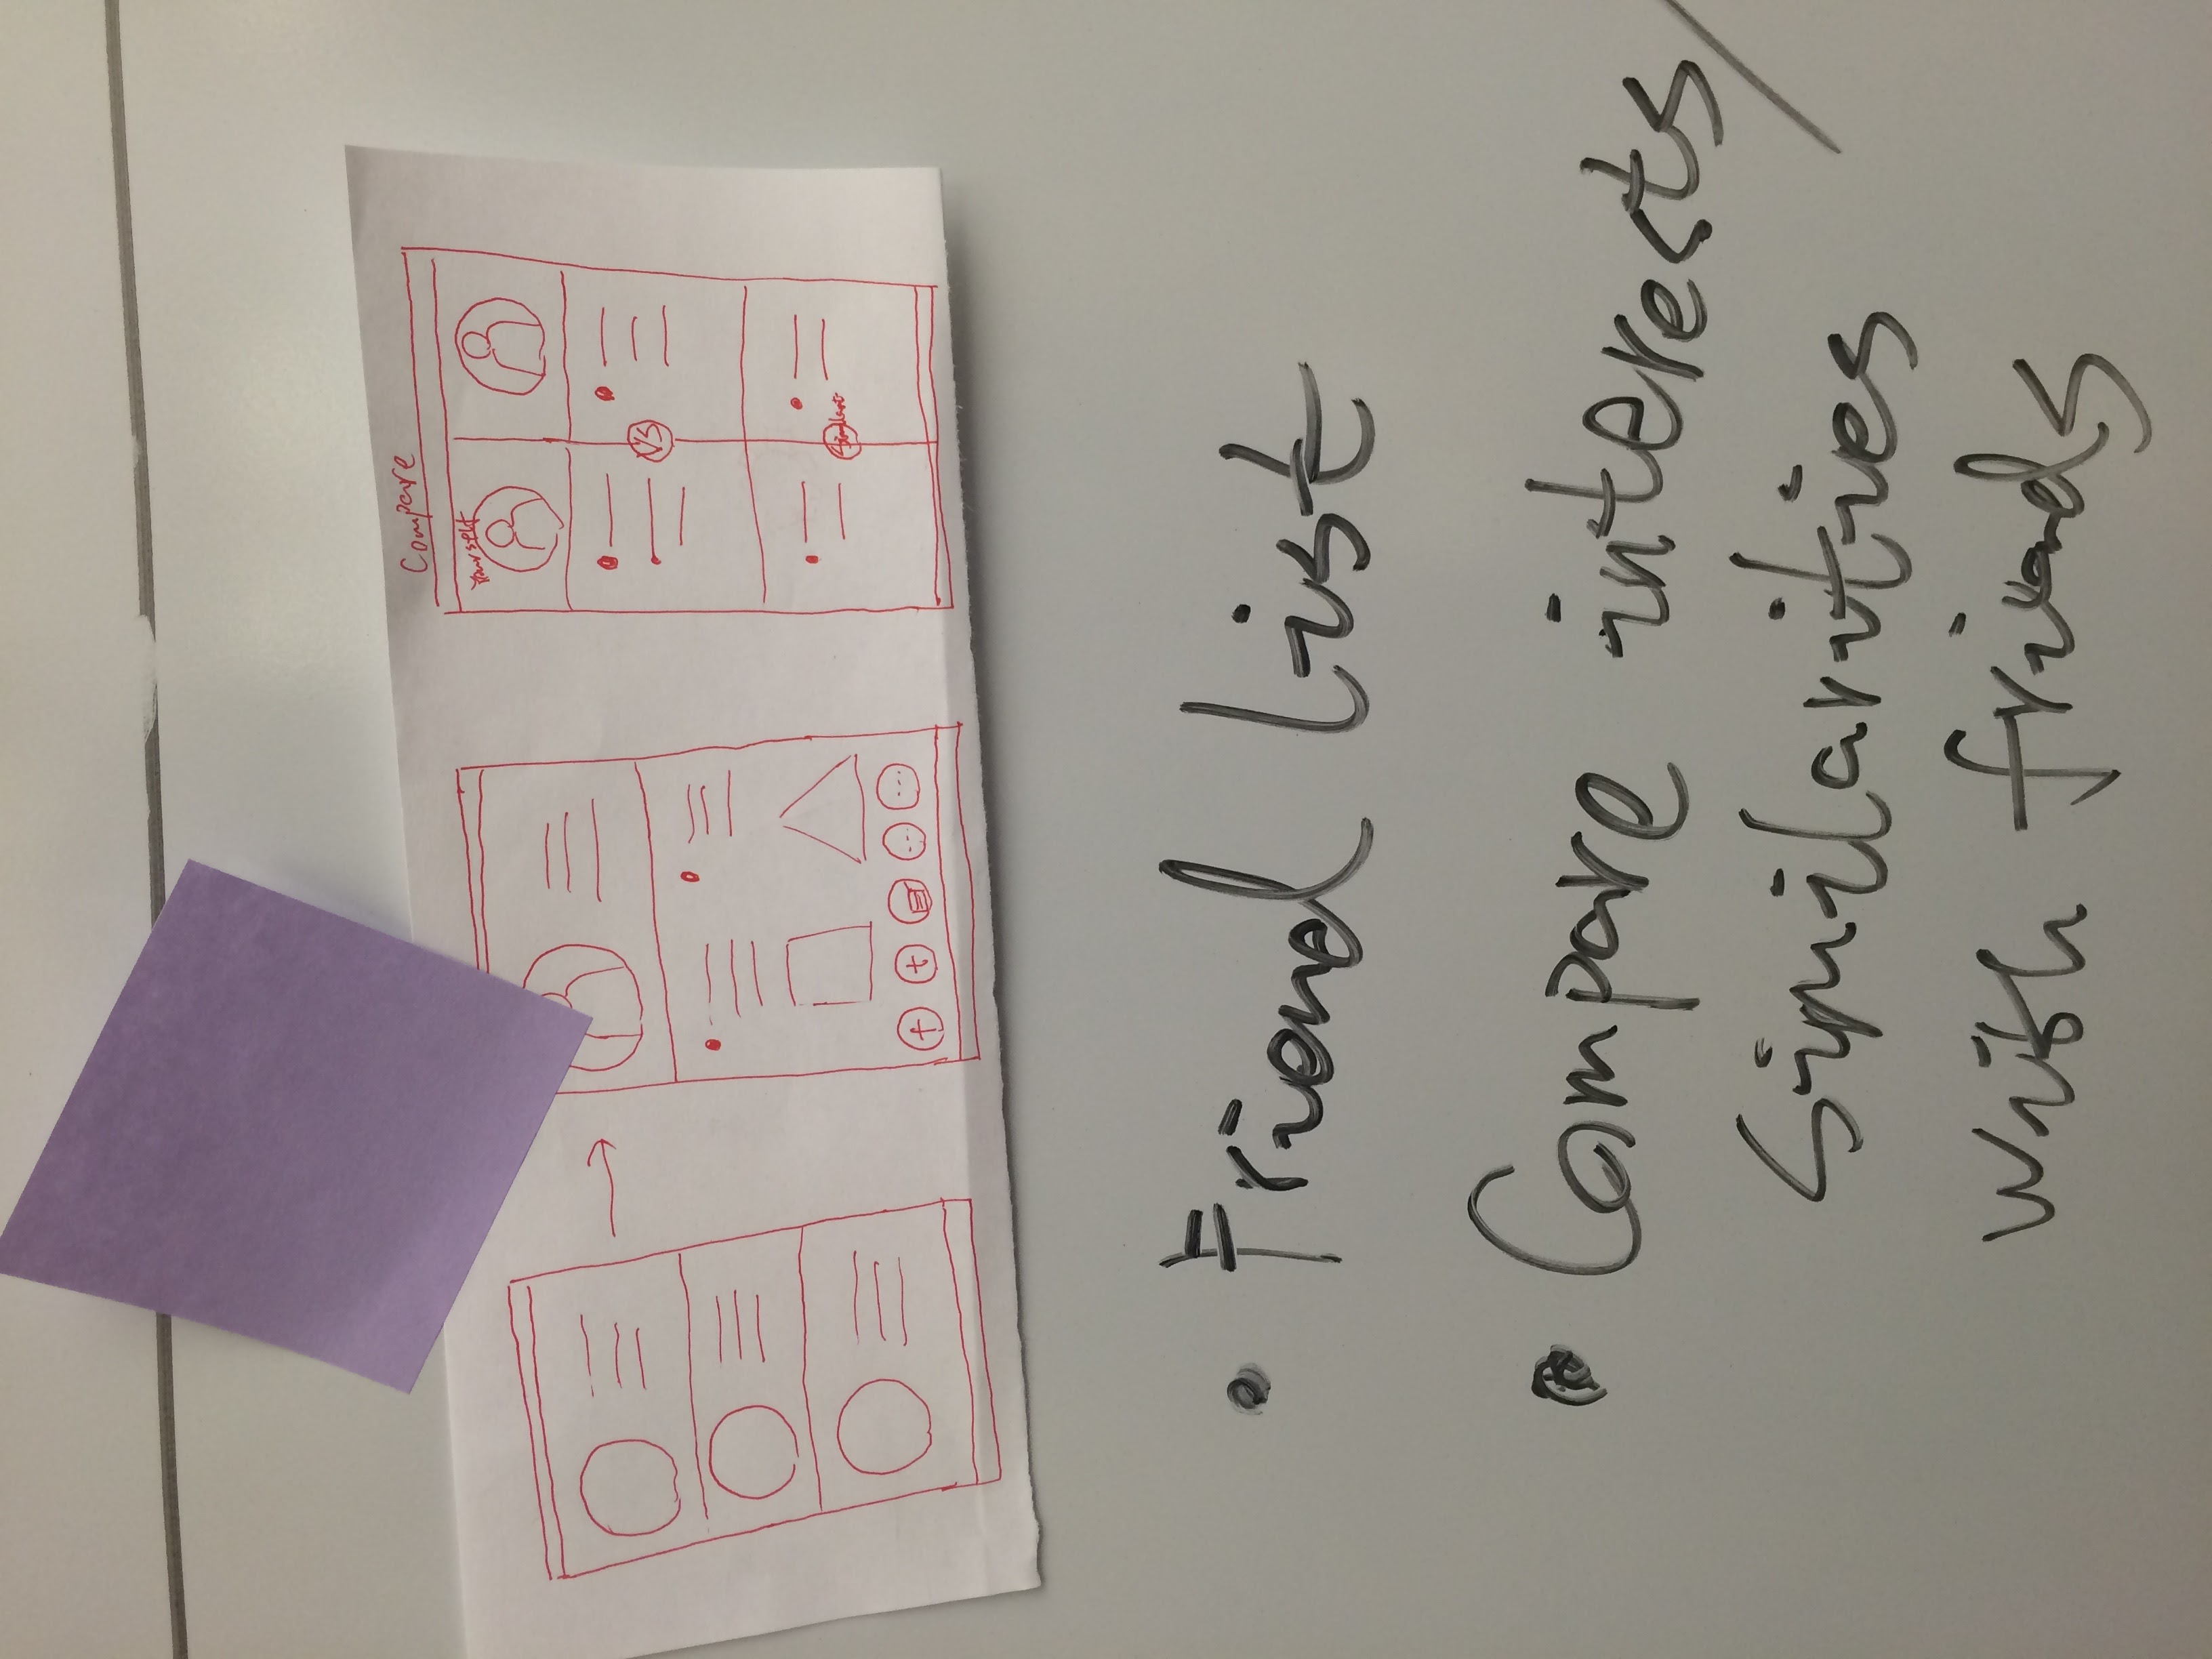 Compare
Yourself
VS
Similar
f t
• Friend list
• Compare interests/
similarities
with friends